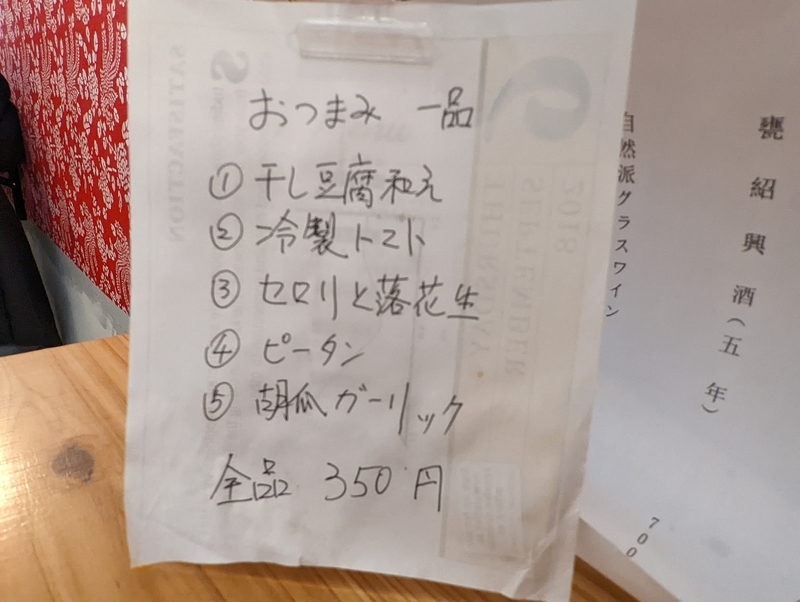 おつまみ 一品
① 干し豆腐和え
② 冷製トマト
③ セロリと落花生
④ ピータン
⑤ 胡瓜ガーリック
全品 350円
甕紹興酒(五年)
自然派グラスワイン
700
2018
SEPTEMBER
THURSDAY
SATISFACTION